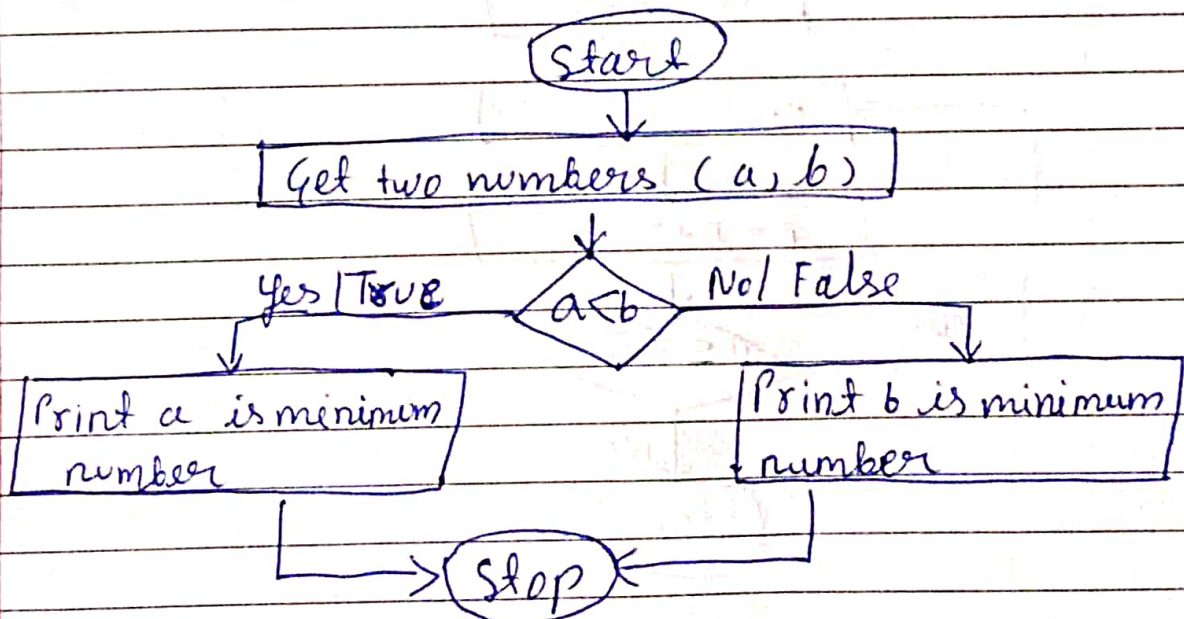 Start
Get two numbers (a, b)
Yes | True
a<b
No/ False
Print a is minimum
number
Print b is minimum
number
Stop